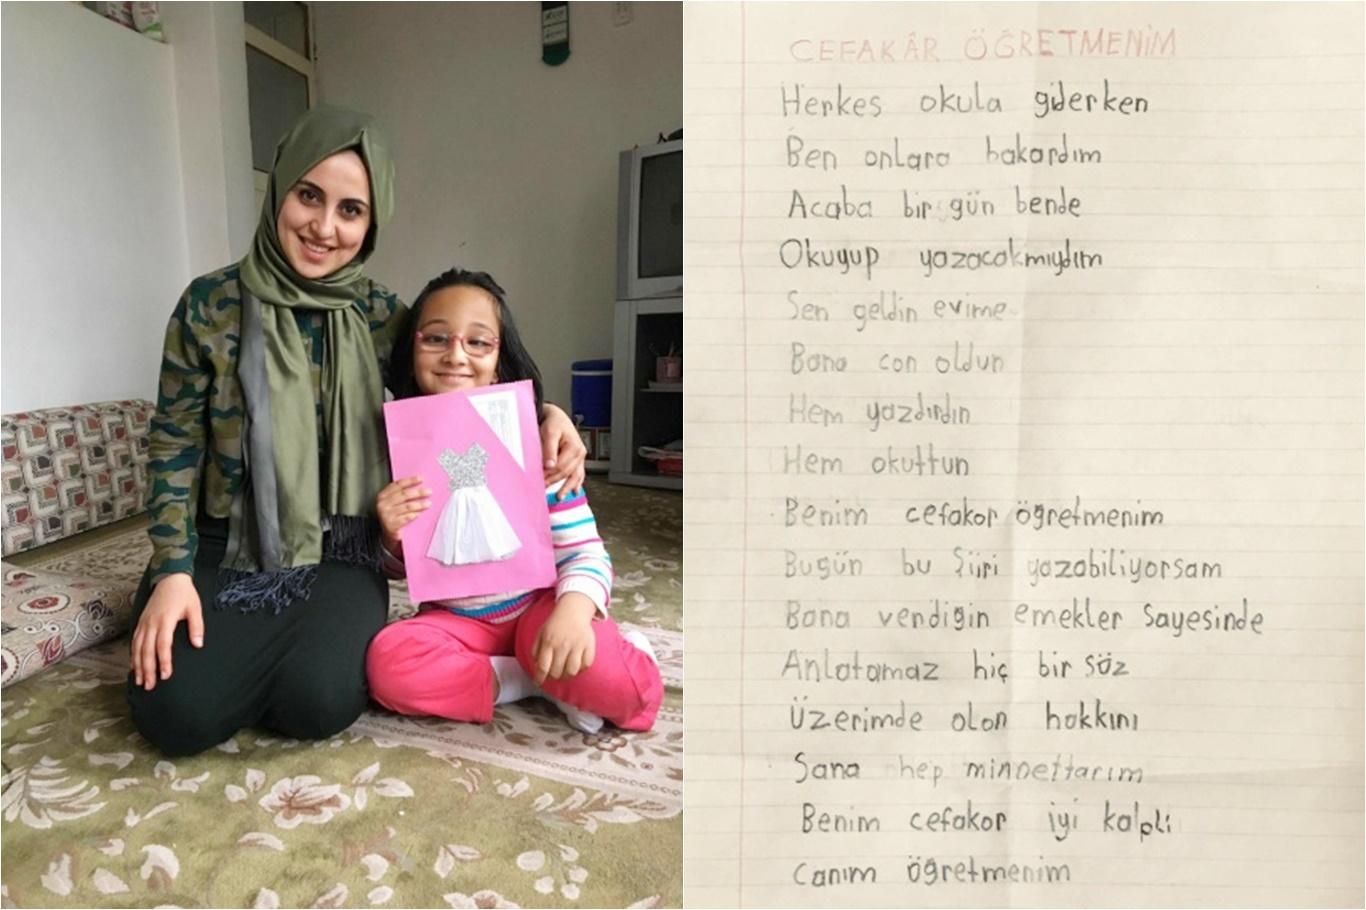 CEFAKÂR ÖĞRETMENİM
Herkes okula giderken
Ben onlara bakardım
Acaba bir gün bende
Okuyup yazacakmıydım
Sen geldin evime
Bana can oldun
Hem yazdırdın
Hem okuttun
Benim cefakar öğretmenim
Bugün bu şiiri yazabiliyorsam
Bana verdiğin emekler sayesinde
Anlatamaz hiç bir söz
Üzerimde olan hakkını
Sana hep minnettarım
Benim cefakar iyi kalpli
canım öğretmenim